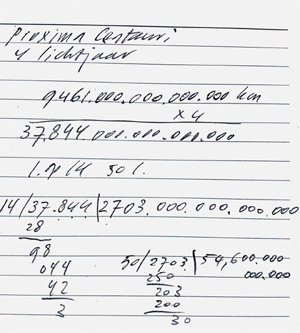 Proxima Centauri
4 lichtjaar
9461.000.000.000.000 km
x 4
37.844.000.000.000.000
1 op 14 50 l.
14/37.844/2703.000.000.000.000
28
98
044
42
3
50/2703/54,600.000
000.000
250
203
200
30